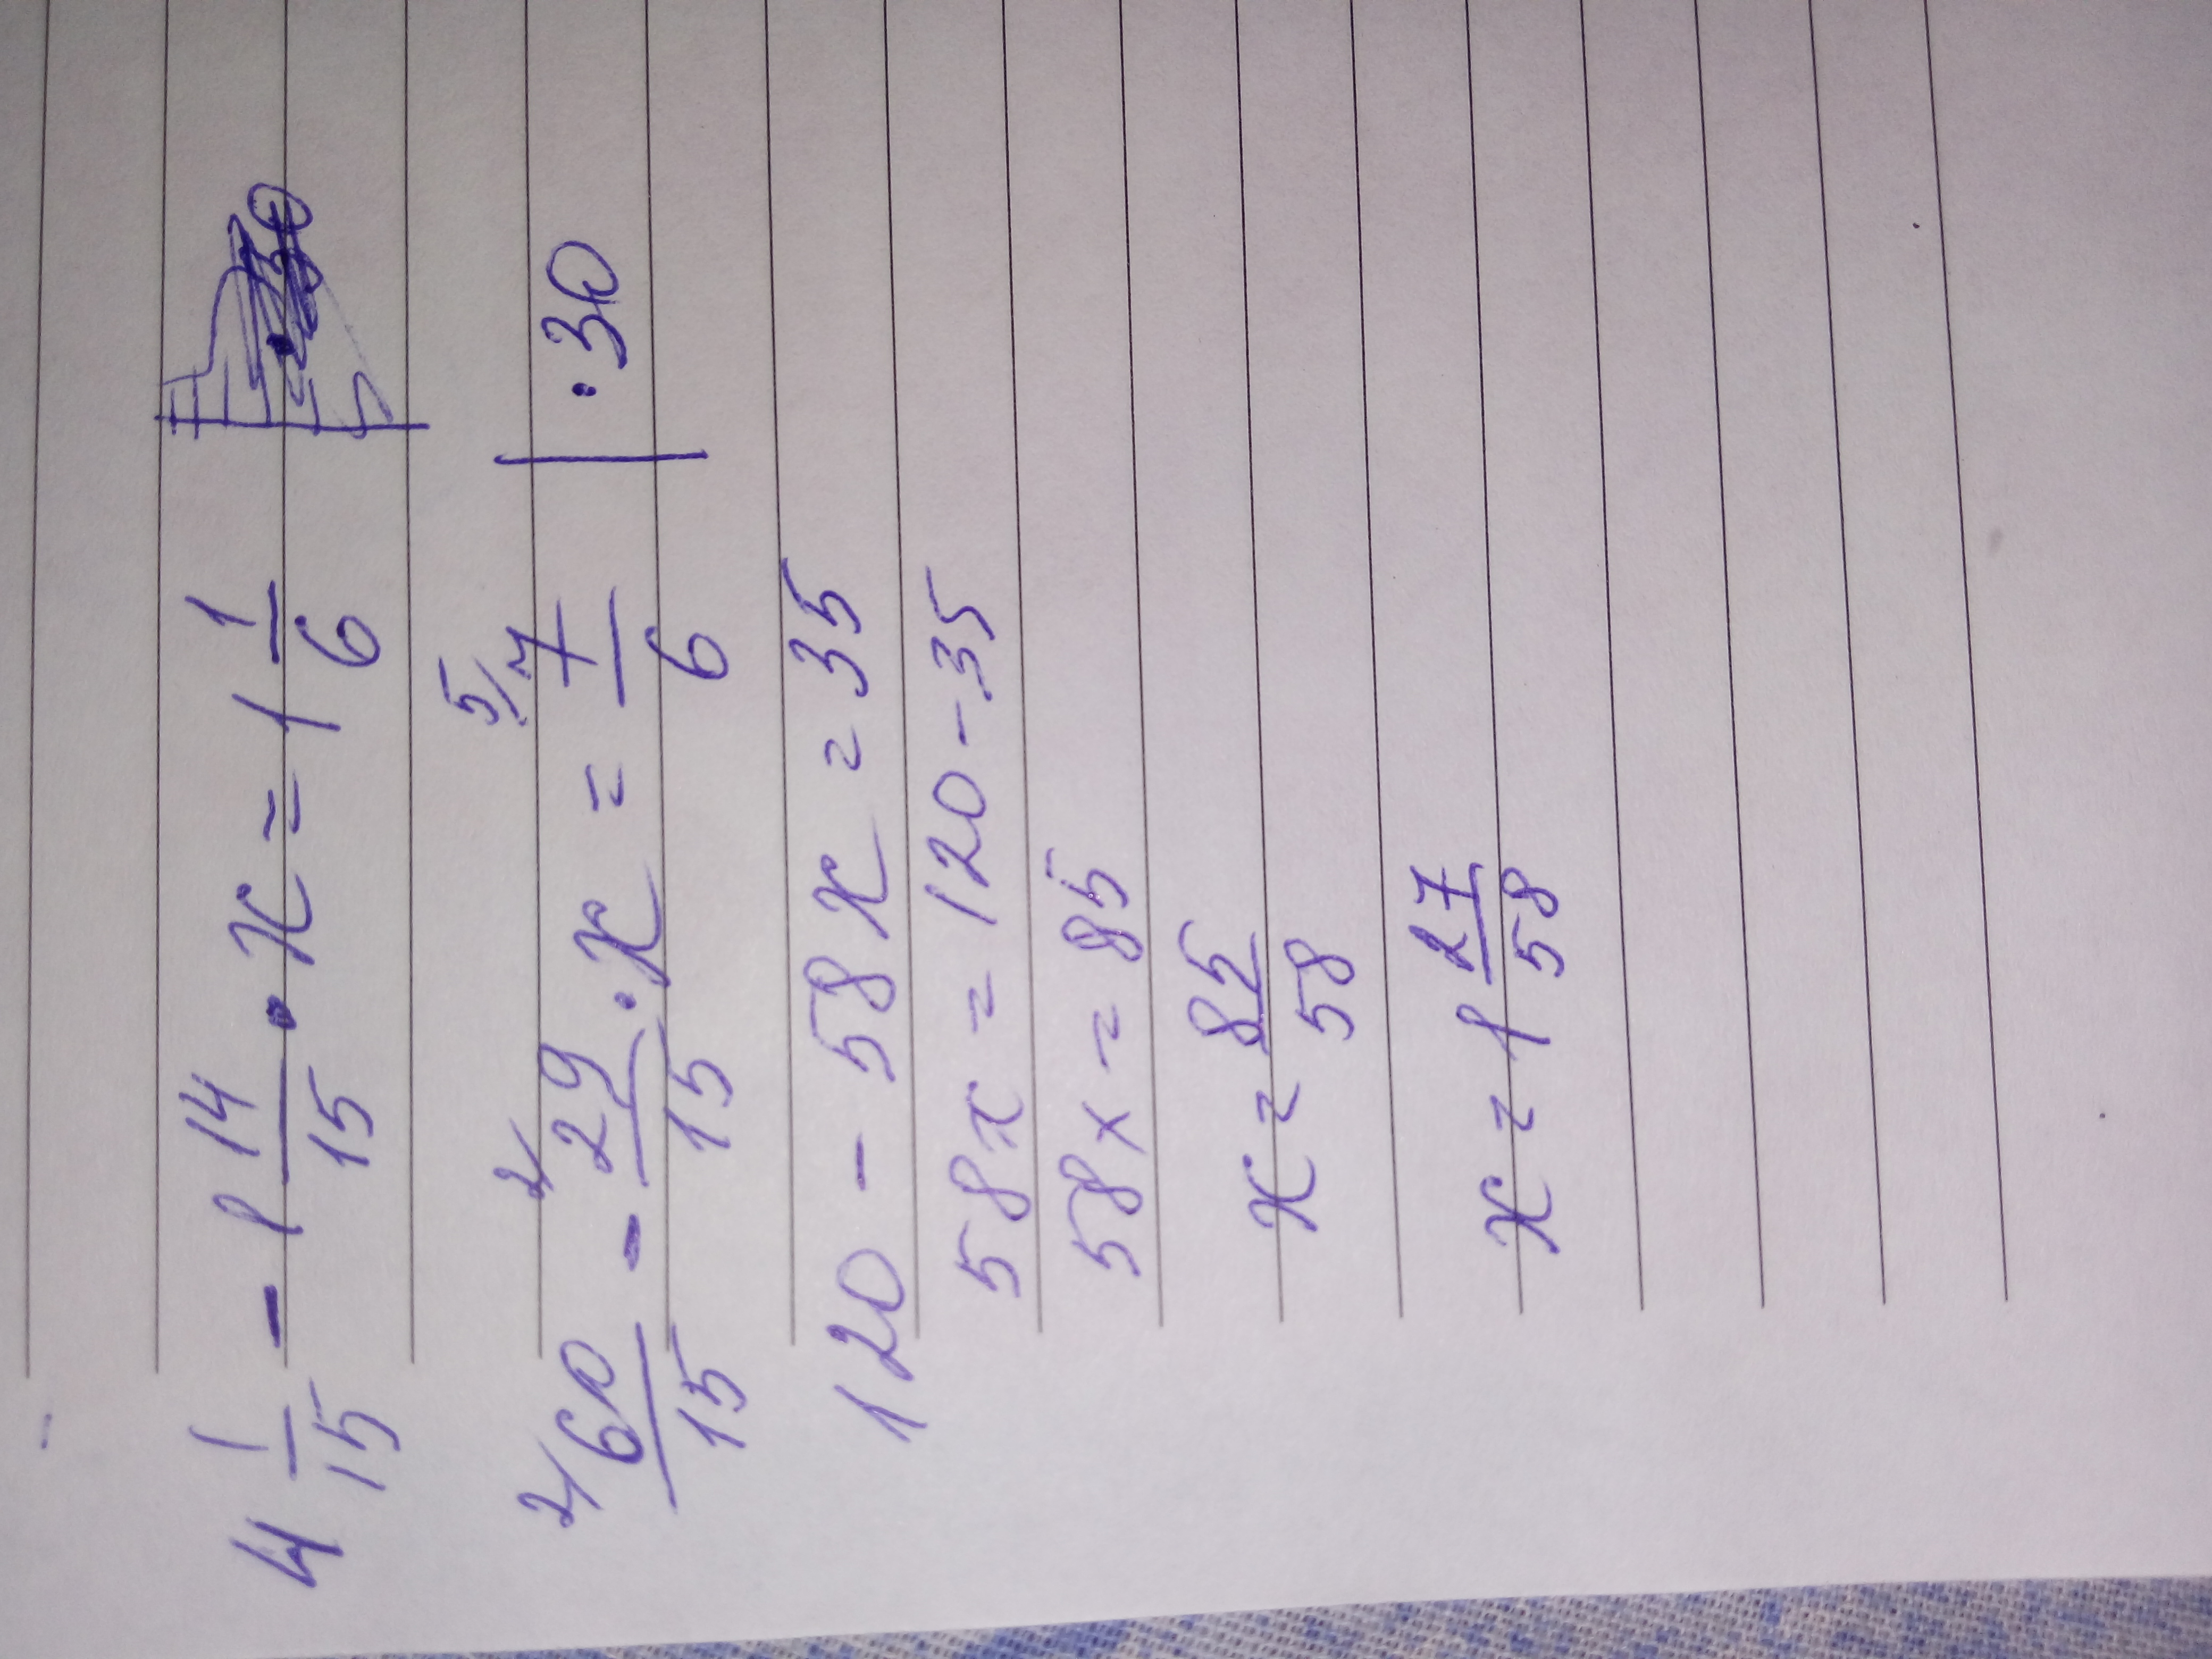 4 1/15 - 1 14/15 · x = 1 1/6
2/ 60/15 - 2/ 29/15 · x = 5/ 7/6 | · 30
120 - 58x = 35
58x = 120 - 35
58x = 85
x = 85/58
x = 1 27/58